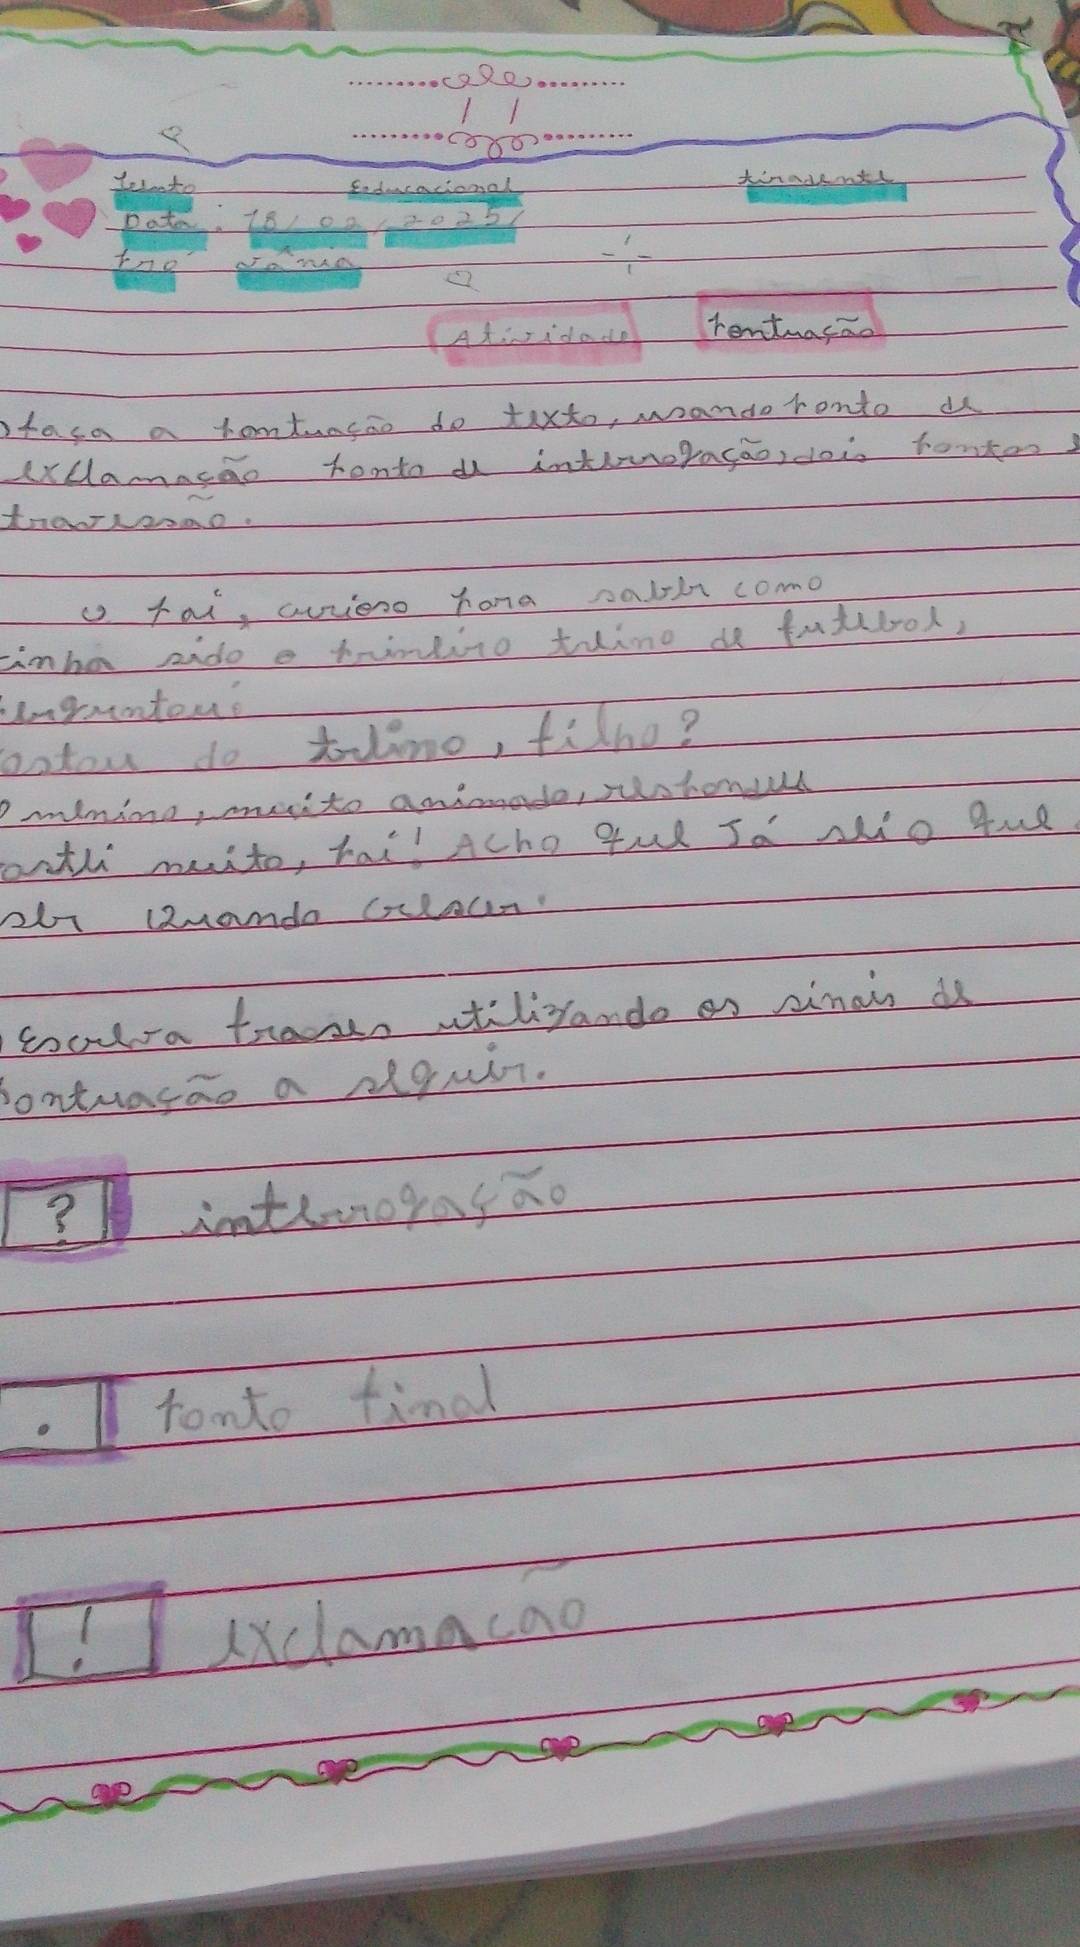 Educacional Tiradentes
Data: 18/02/2025
Pró Vânia
Atividade Pontuação
faça a pontuação do texto, usando ponto de
exclamação ponto de interrogação, dois pontos e
travessão.
O pai, curioso para saber como
tinha sido o primeiro treino de futebol,
perguntou:
Gostou do treino, filho?
O menino, muito animado, respondeu
Gostei muito, pai! Acho que Já sei o que
ser Quando crescer.
Escreva frases utilizando os sinais de
Pontuação a seguir.
? interrogação
. Ponto final
! exclamação